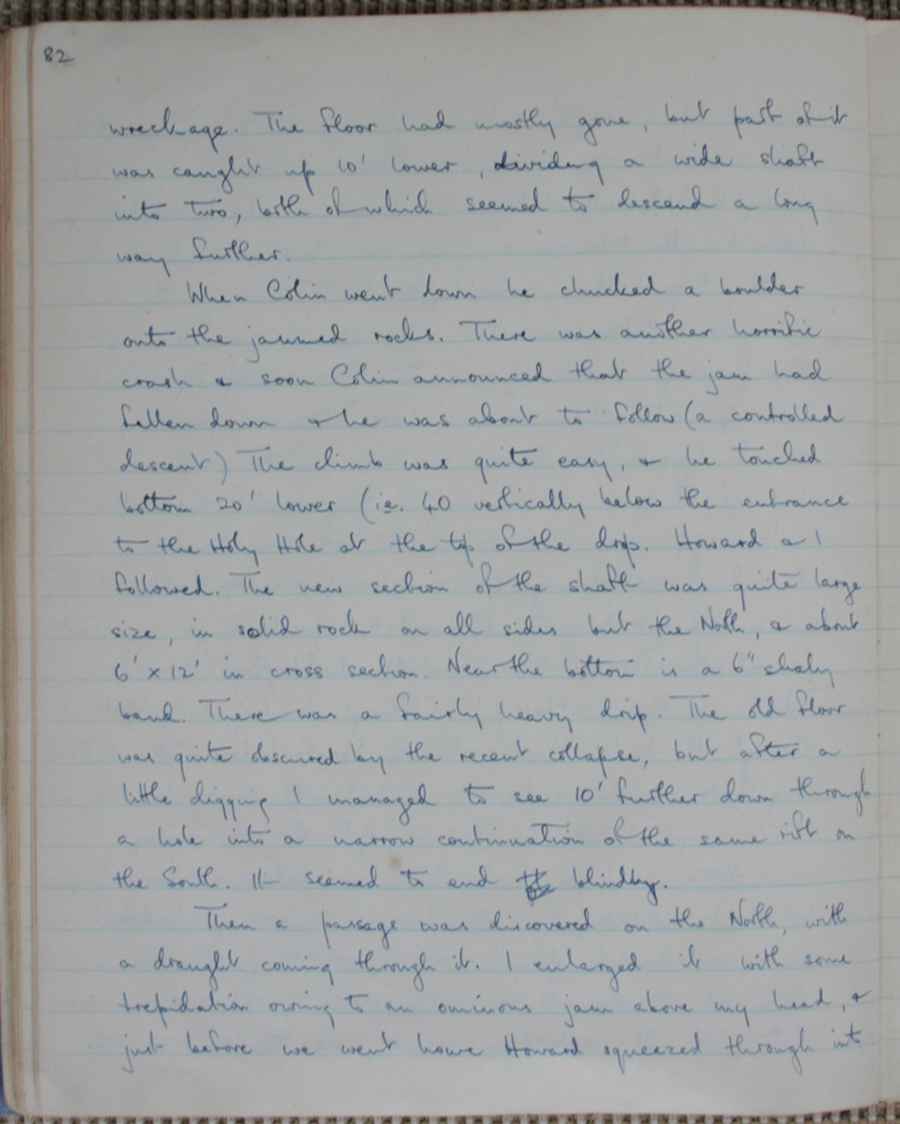 82
wreckage. The floor had mostly gone, but part of it
was caught up 10' lower, dividing a wide shaft
into two, both of which seemed to descend a long
way further.
When Colin went down he chucked a boulder
onto the jammed rocks. There was another horrific
crash & soon Colin announced that the jam had
fallen down & he was about to follow (a controlled
descent) The climb was quite easy, & he touched
bottom 20' lower (ie. 40 vertically below the entrance
to the Holy Hole at the top of the drop. Howard & I
followed. The new section of the shaft was quite large
size, in solid rock on all sides but the North, & about
6' x 12' in cross section. Near the bottom is a 6" shaly
band. There was a fairly heavy drip. The old floor
was quite obscured by the recent collapse, but after a
little digging I managed to see 10' further down through
a hole into a narrow continuation of the same rift on
the South. It seemed to end blindly.
Then a passage was discovered on the North, with
a draught coming through it. I enlarged it with some
trepidation owing to an ominous jam above my head, &
just before we went home Howard squeezed through into